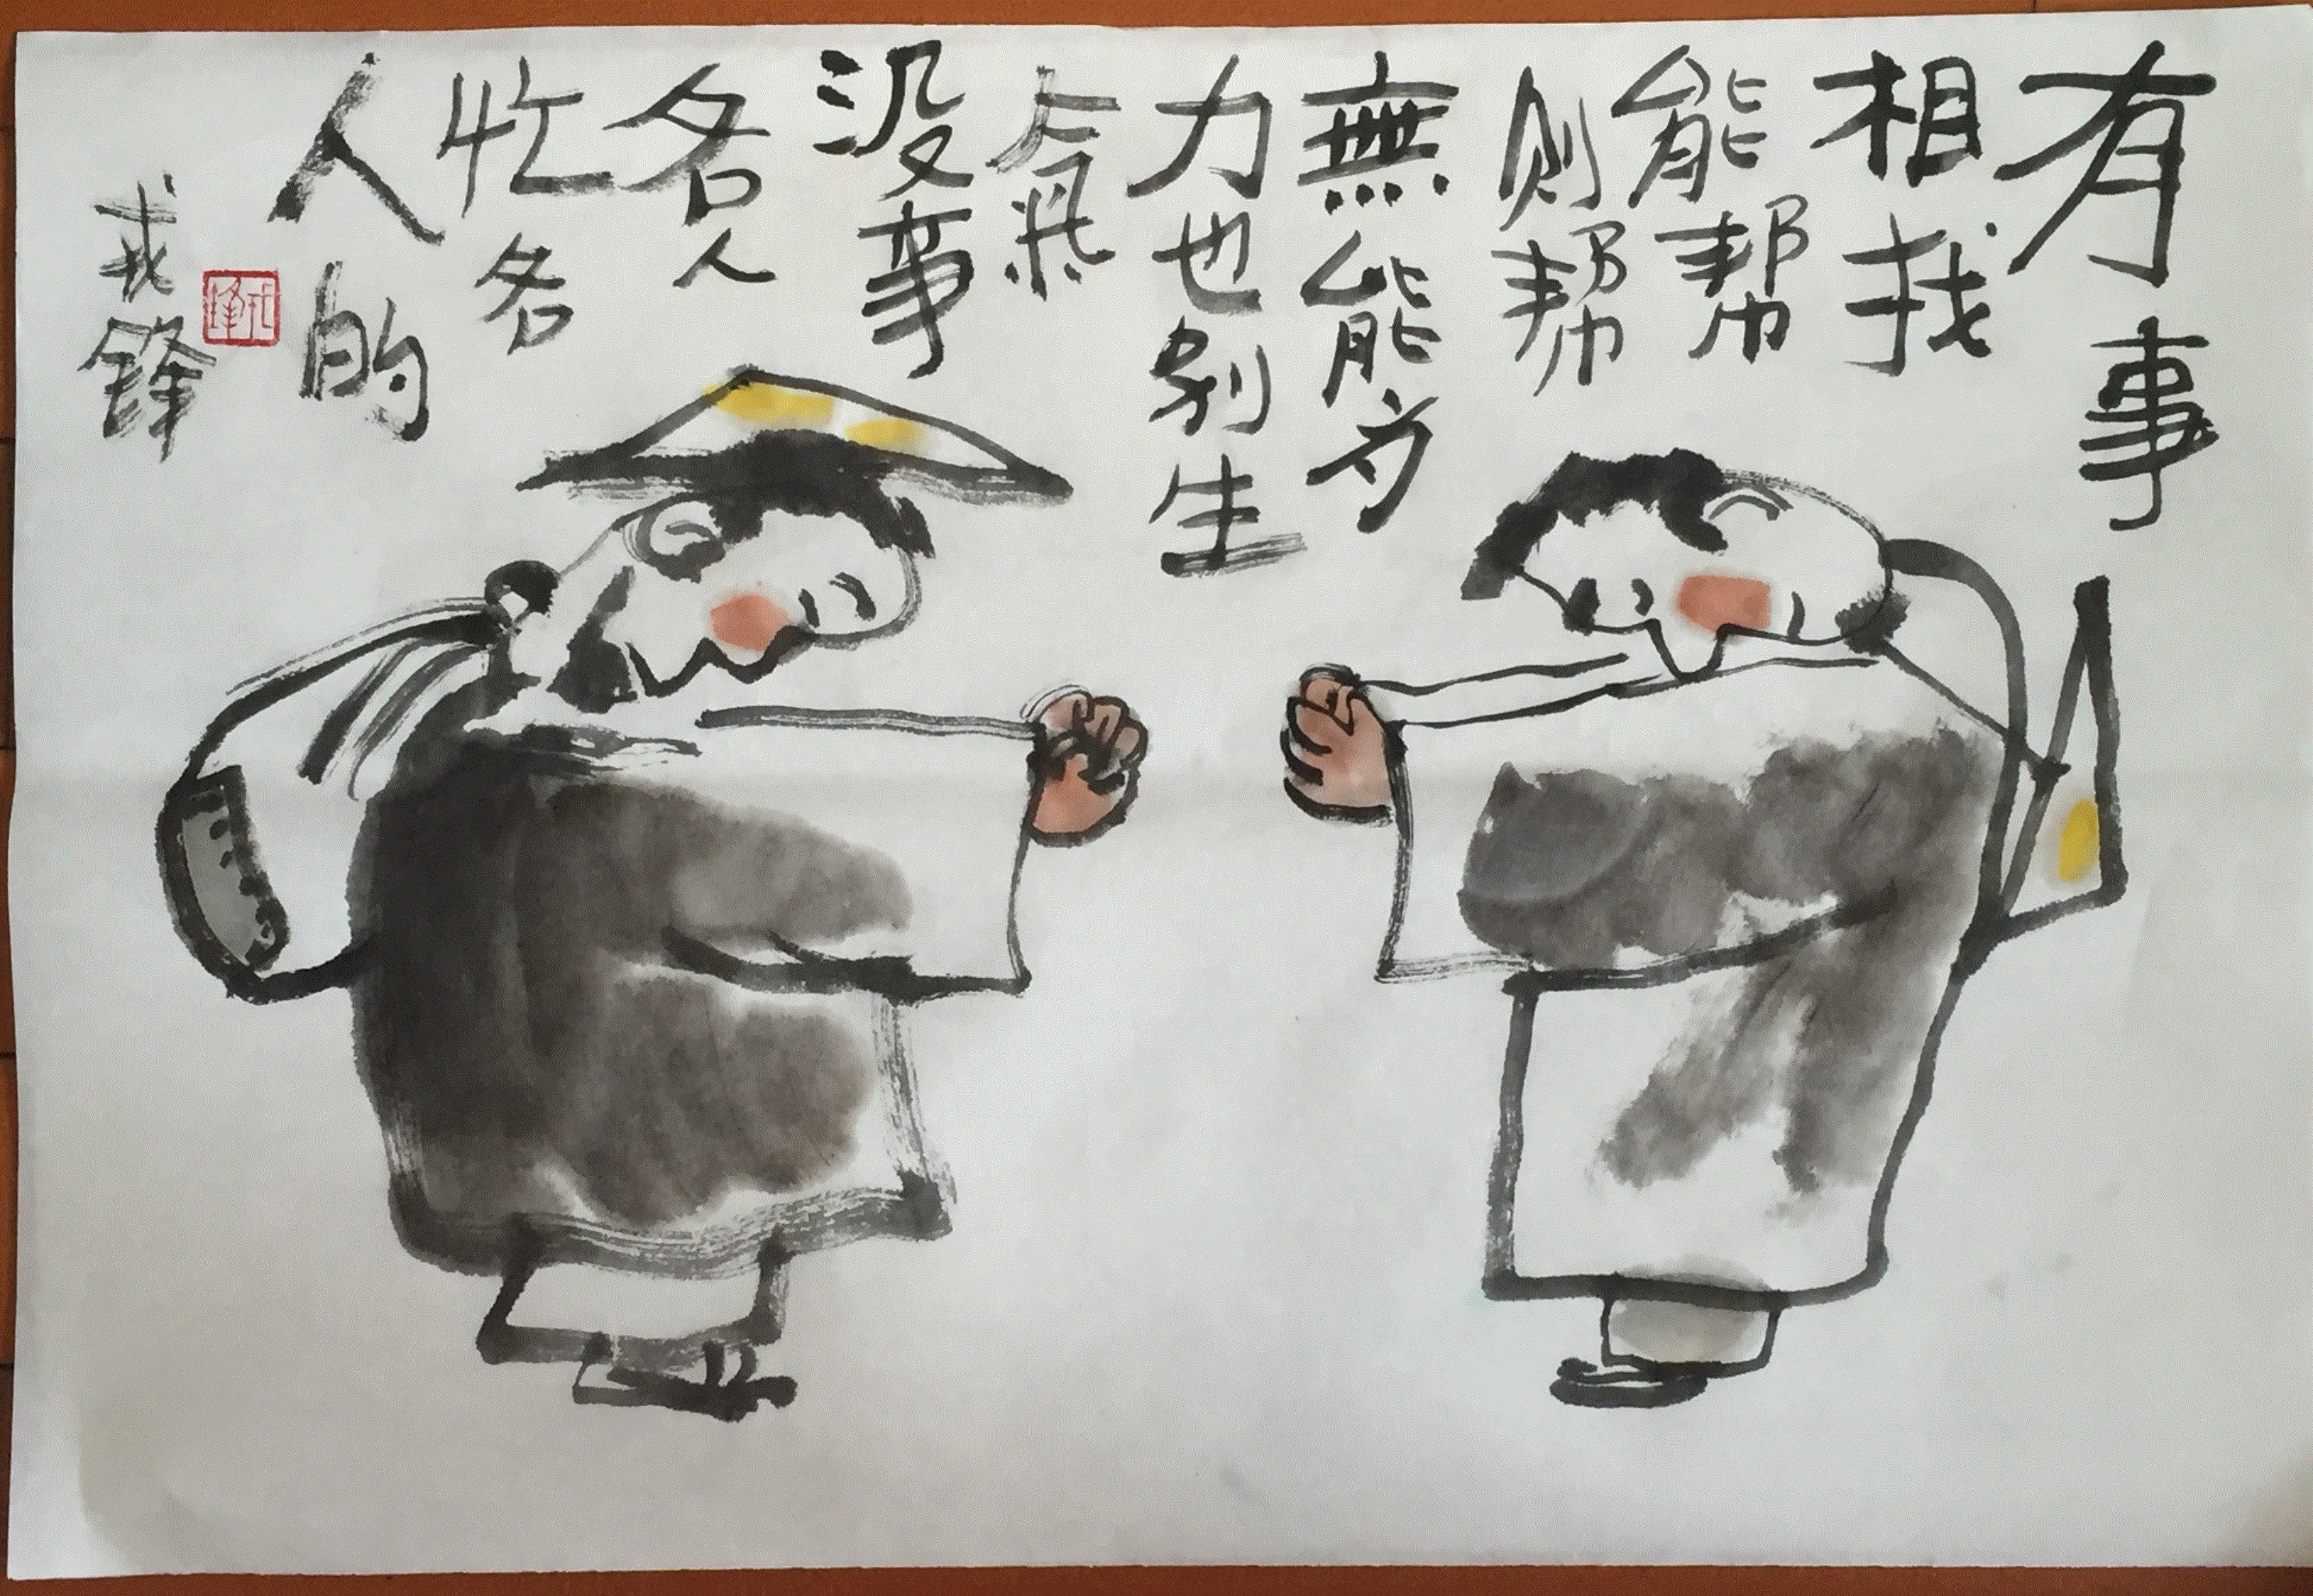 有事
相找
能帮
则帮
無能为
力也别生
氣
没事
各人
忙各
人的
戎鋒